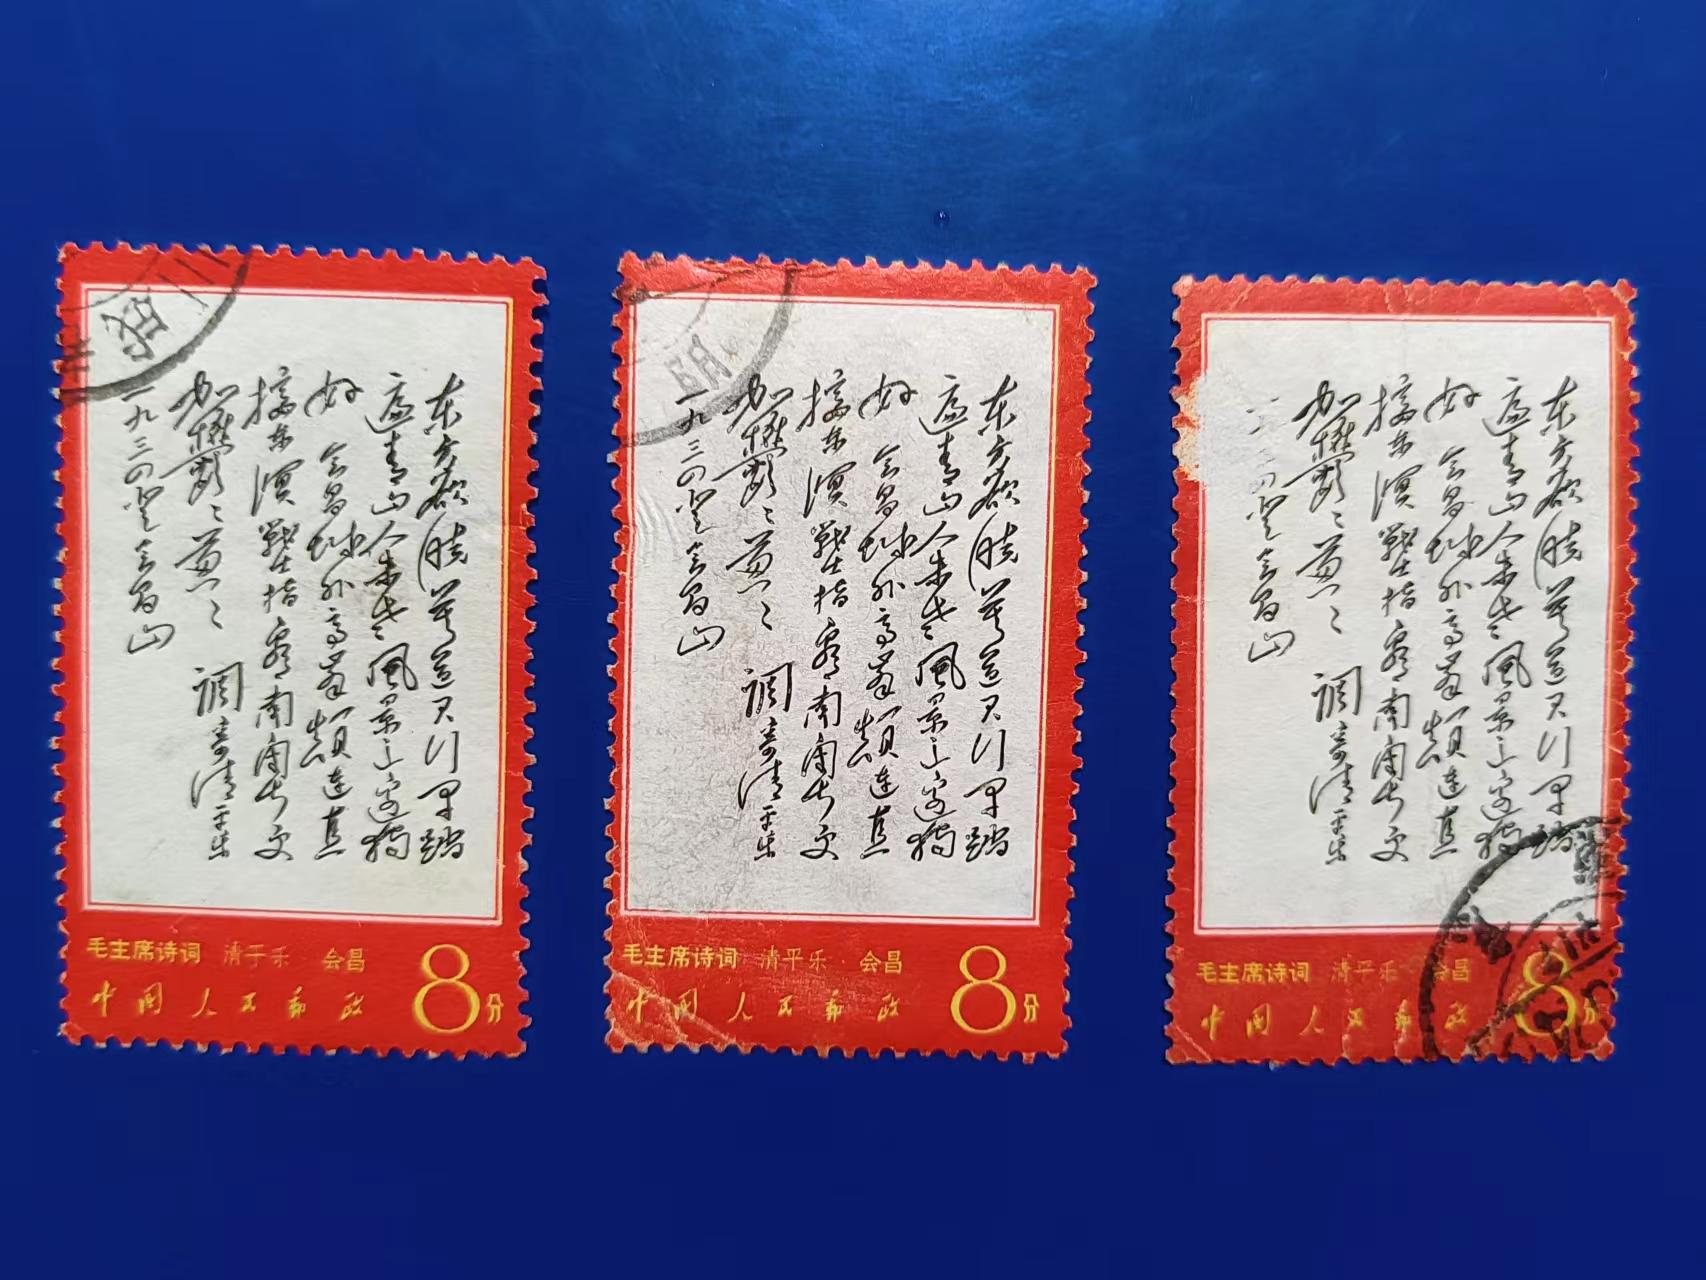 东方欲晓莫道君行早踏
遍青山人未老風景这边独
好 会昌城外高峯颠连直
接东溟戰士指看南粤更
加鬱〻葱〻 調寄清平乐
一九三四登会昌山
毛主席诗词 清平乐 会昌
中国人民邮政 8分
东方欲晓莫道君行早踏
遍青山人未老風景这边独
好 会昌城外高峯颠连直
接东溟戰士指看南粤更
加鬱〻葱〻 調寄清平乐
一九三四登会昌山
毛主席诗词 清平乐 会昌
中国人民邮政 8分
东方欲晓莫道君行早踏
遍青山人未老風景这边独
好 会昌城外高峯颠连直
接东溟戰士指看南粤更
加鬱〻葱〻 調寄清平乐
四登会昌山
毛主席诗词 清平乐 会昌
中国人民邮政 8分